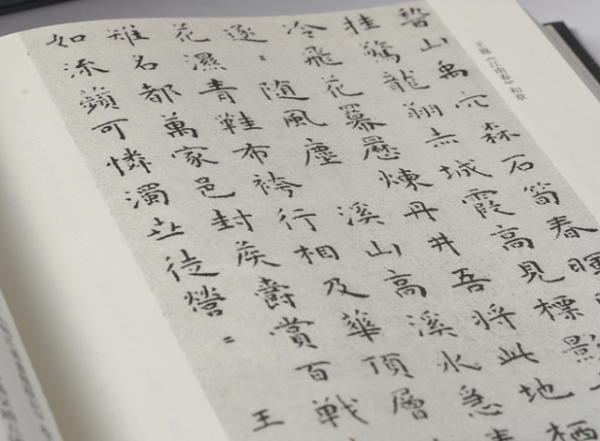 王寵《江南春》和章
山禹穴森石筍春暉
挂驚龍翔赤城霞高見標影
冷飛花羃歷煉丹井吾將此地栖
逐〻随風塵 溪山高溪水急
花濕青鞋布袴行相及華頂層
雖名都萬家邑封侯爵賞百戰
如流蘋可憐濁世徒營〻 王